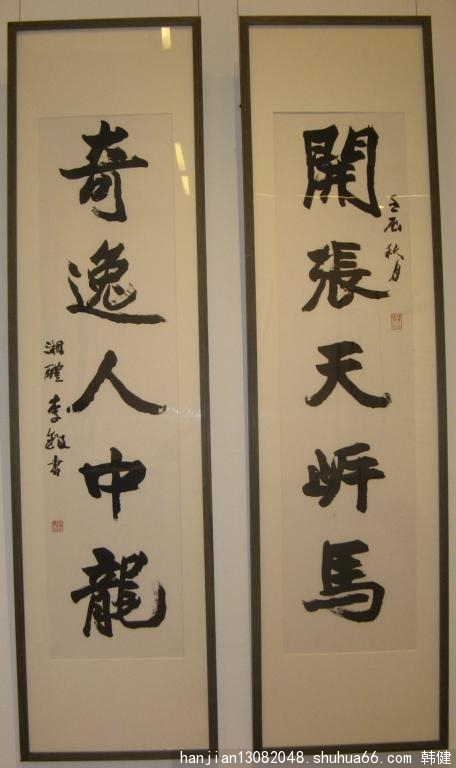 開張天岸馬
壬辰 秋月
奇逸人中龍
湘醴 李 书
hanjian13082048.shuhua66.com 韩健